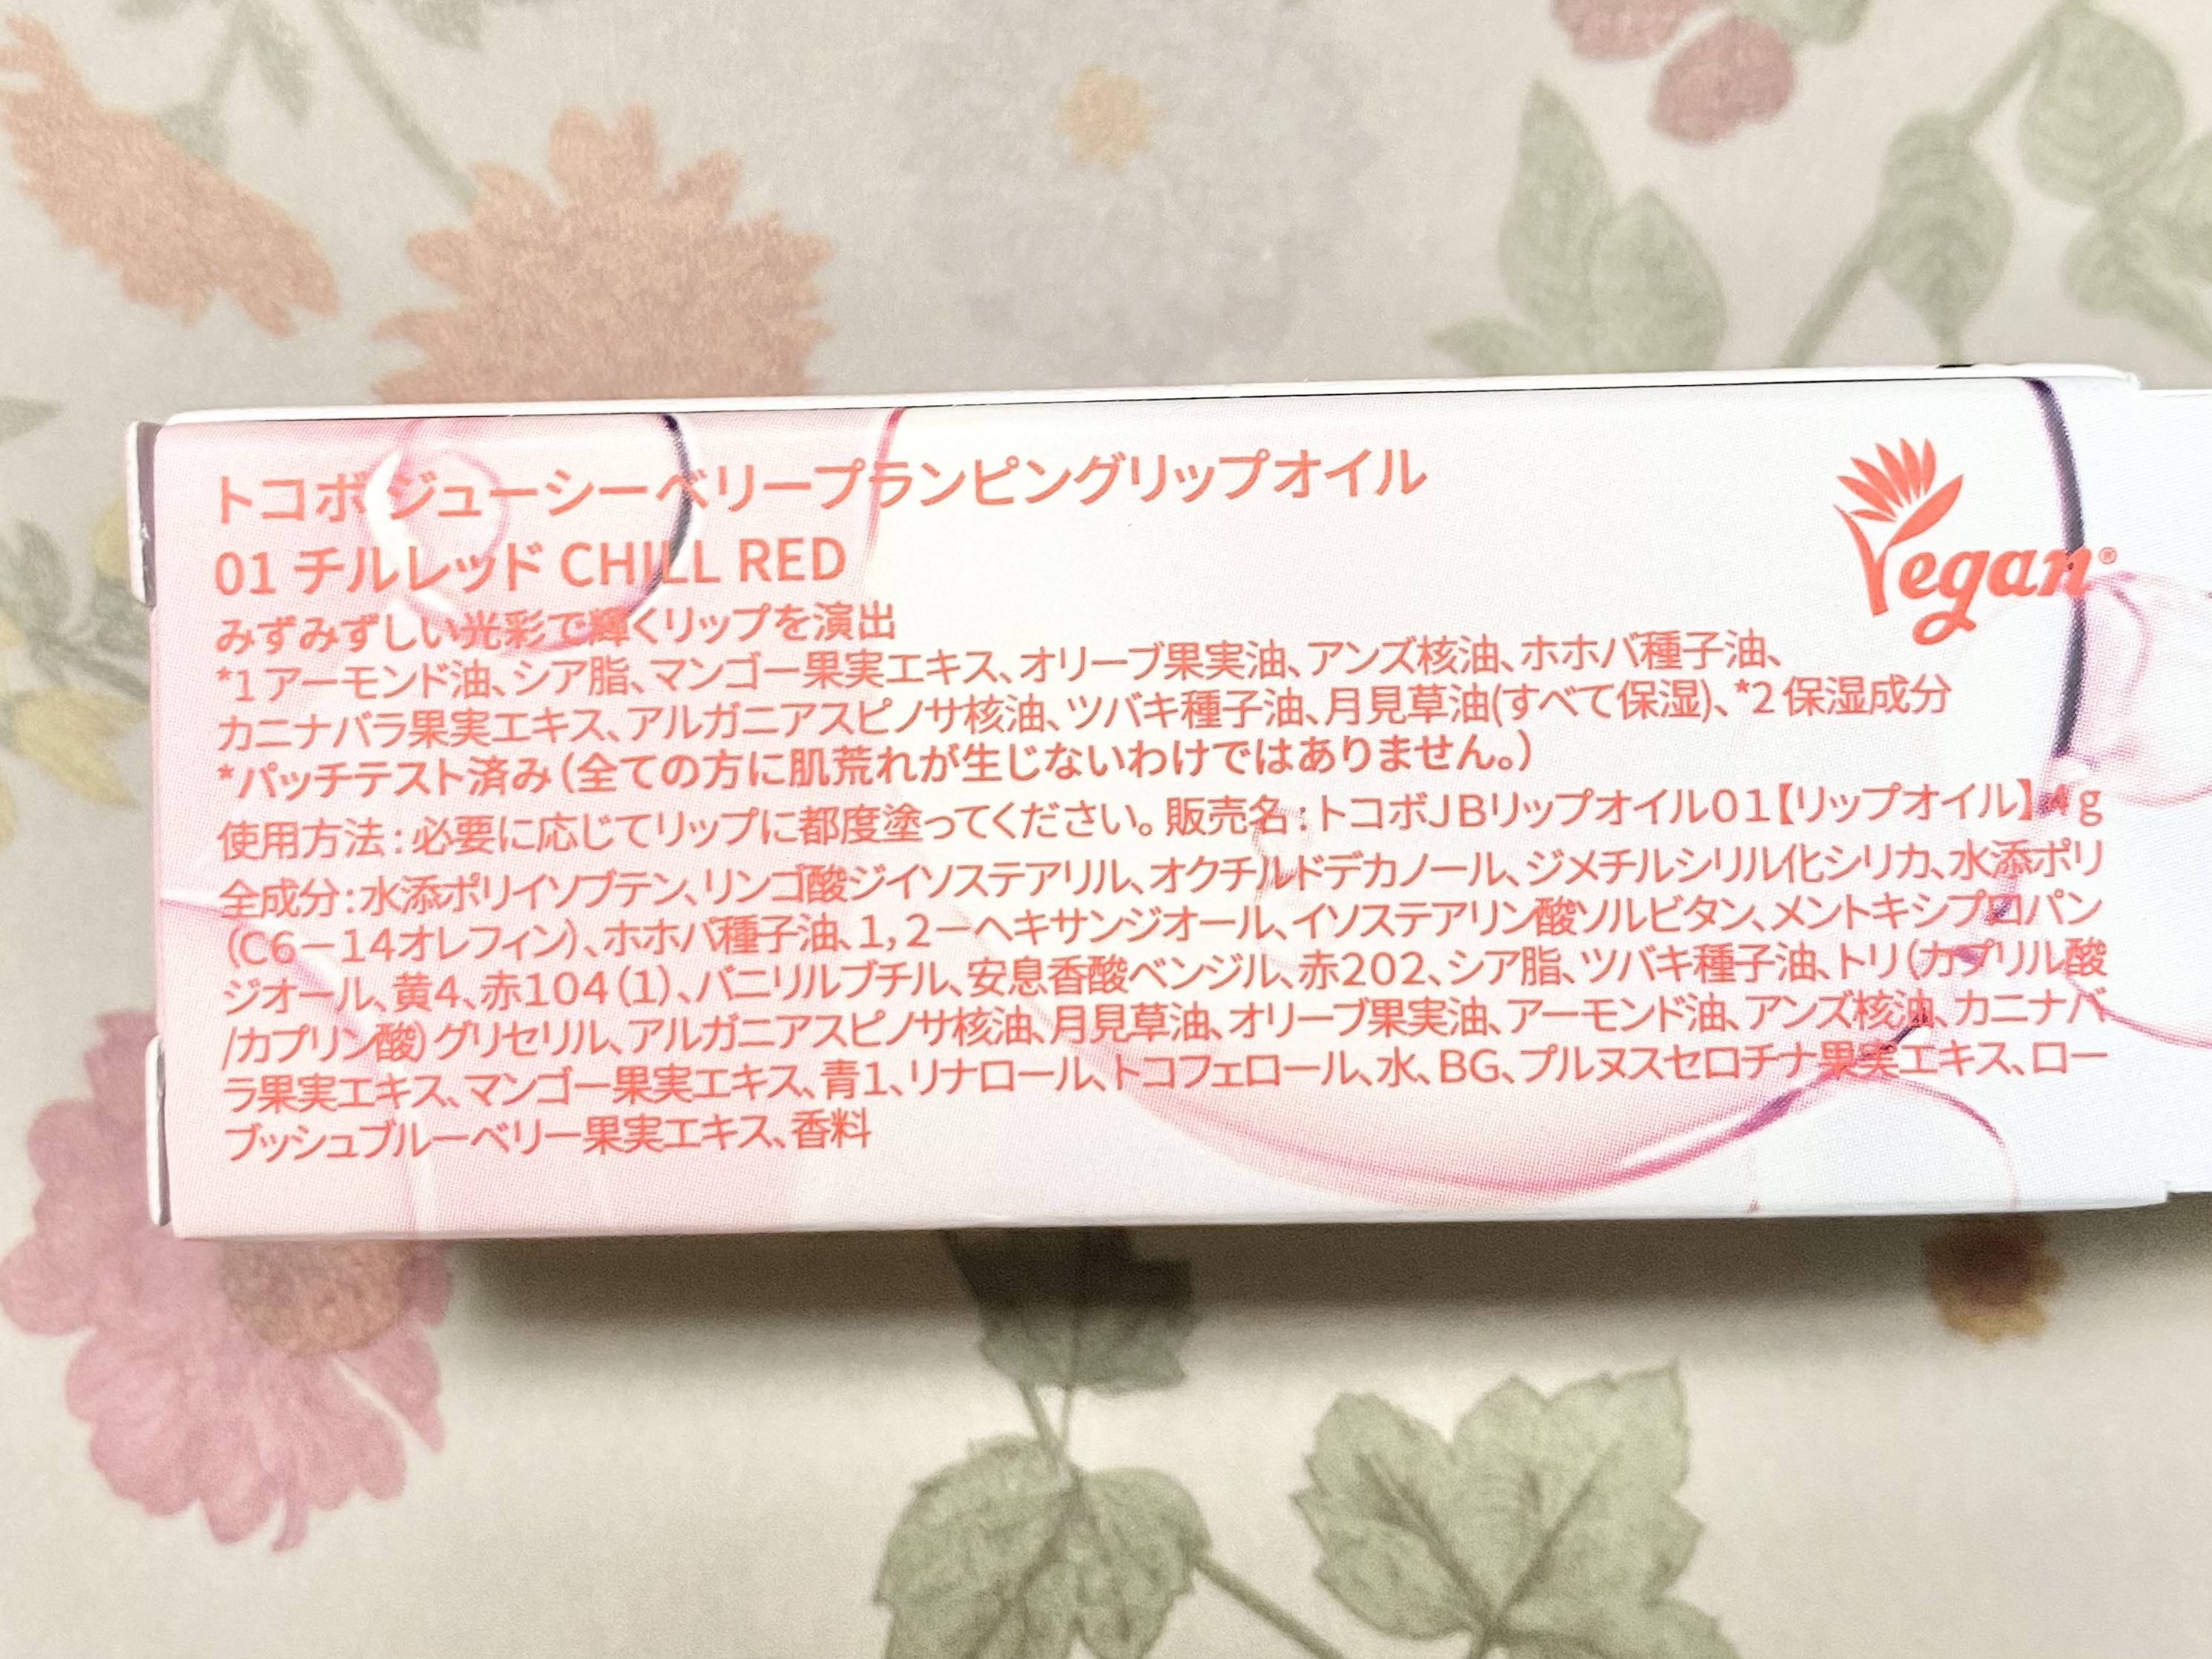 トコボ ジューシーベリープランピングリップオイル
01 チルレッド CHILL RED
Vegan®
みずみずしい光彩で輝くリップを演出
*1アーモンド油、シア脂、マンゴー果実エキス、オリーブ果実油、アンズ核油、ホホバ種子油、
カニナバラ果実エキス、アルガニアスピノサ核油、ツバキ種子油、月見草油(すべて保湿)、*2保湿成分
*パッチテスト済み(全ての方に肌荒れが生じないわけではありません。)
使用方法:必要に応じてリップに都度塗ってください。販売名:トコボJBリップオイル01【リップオイル】4g
全成分:水添ポリイソブテン、リンゴ酸ジイソステアリル、オクチルドデカノール、ジメチルシリル化シリカ、水添ポリ
(C6－14オレフィン)、ホホバ種子油、1,2－ヘキサンジオール、イソステアリン酸ソルビタン、メントキシプロパン
ジオール、黄4、赤104(1)、バニリルブチル、安息香酸ベンジル、赤202、シア脂、ツバキ種子油、トリ(カプリル酸
/カプリン酸)グリセリル、アルガニアスピノサ核油、月見草油、オリーブ果実油、アーモンド油、アンズ核油、カニナバ
ラ果実エキス、マンゴー果実エキス、青1、リナロール、トコフェロール、水、BG、プルヌスセロチナ果実エキス、ロー
ブッシュブルーベリー果実エキス、香料